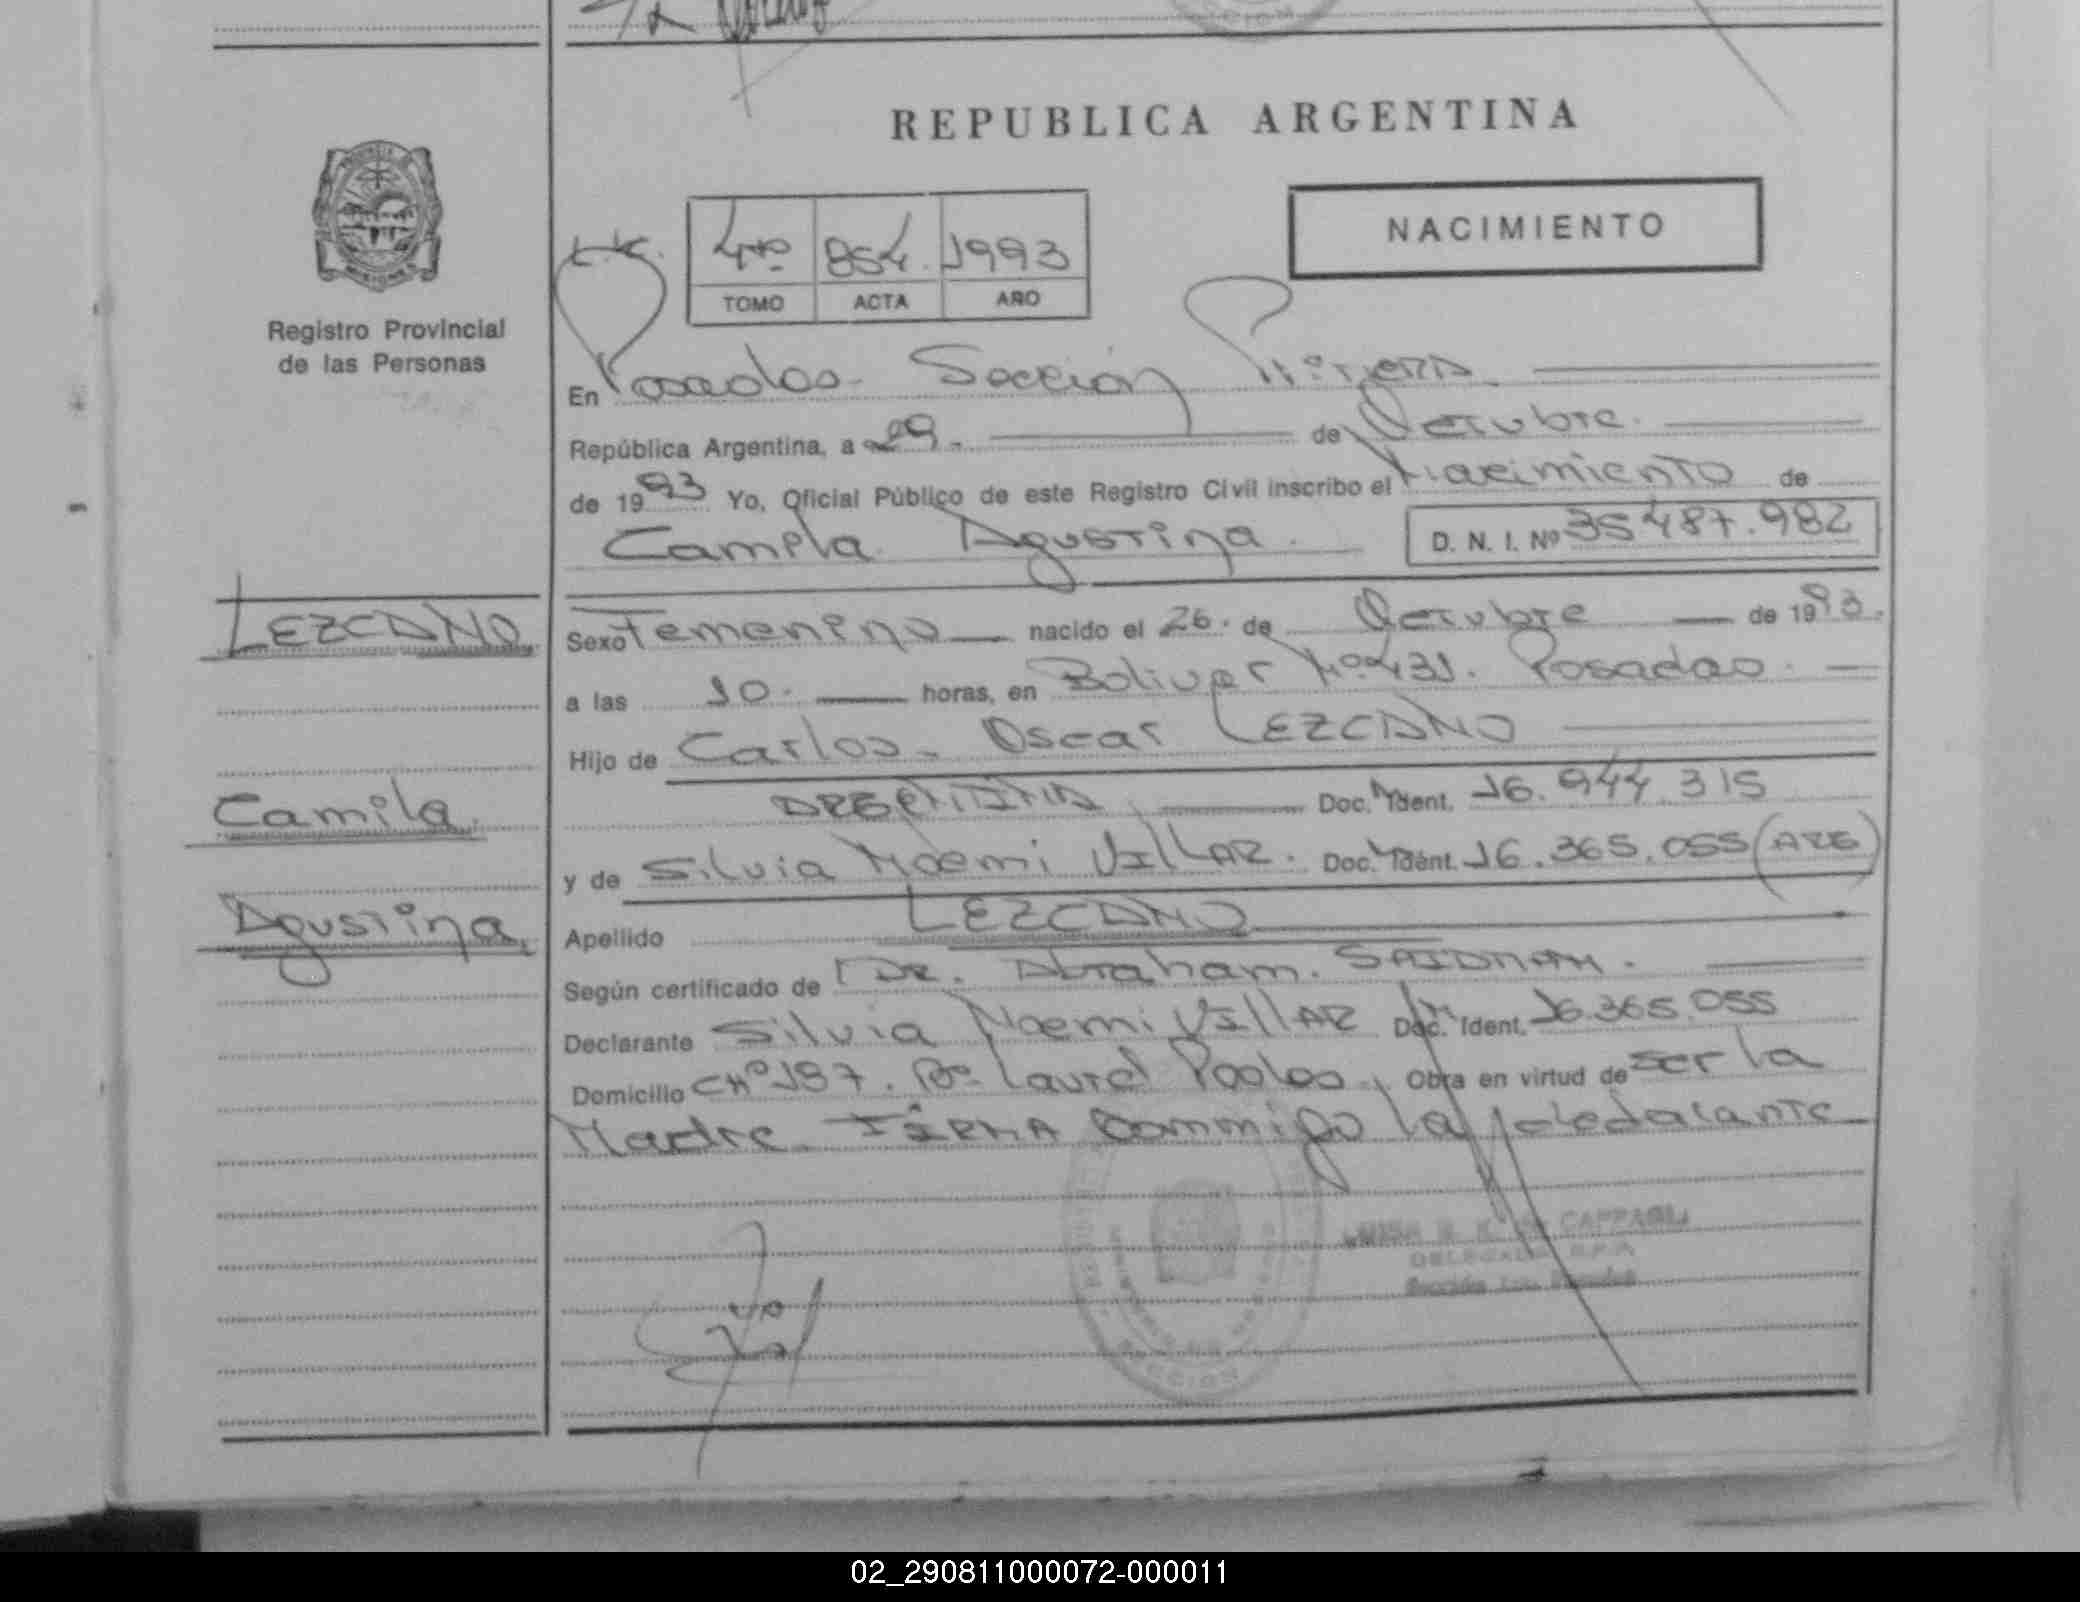 REPUBLICA ARGENTINA
NACIMIENTO
4to 854. 1993
TOMO ACTA AÑO
Registro Provincial
de las Personas
En Posadas. Sección Primera
República Argentina, a 29. de Octubre.
de 1993 Yo, Oficial Público de este Registro Civil inscribo el Nacimiento de
Camila Agustina. D. N. I. Nº 35487.982
LEZCANO
Sexo Femenino nacido el 26. de Octubre de 1993.
a las 10. horas, en Bolivar Nº 431. Posadas.
Hijo de Carlos Oscar LEZCANO
ARGENTINA Doc. Ident. 16.944.315
Camila
y de Silvia Noemi VILLAR. Doc. Ident. 16.365.055 (ARG)
Agustina
Apellido LEZCANO
Según certificado de Dr. Abraham. SAIDMAN.
Declarante Silvia Noemi VILLAR Doc. Ident. 16.365.055
Domicilio CNº 197. Bº Laurel Obra en virtud de ser la
Madre. FIRMA Conmigo la
CAPPAGLI
DELEGADA R.P.P.
Sección 1ra. Posadas
SECCION
02_290811000072-000011